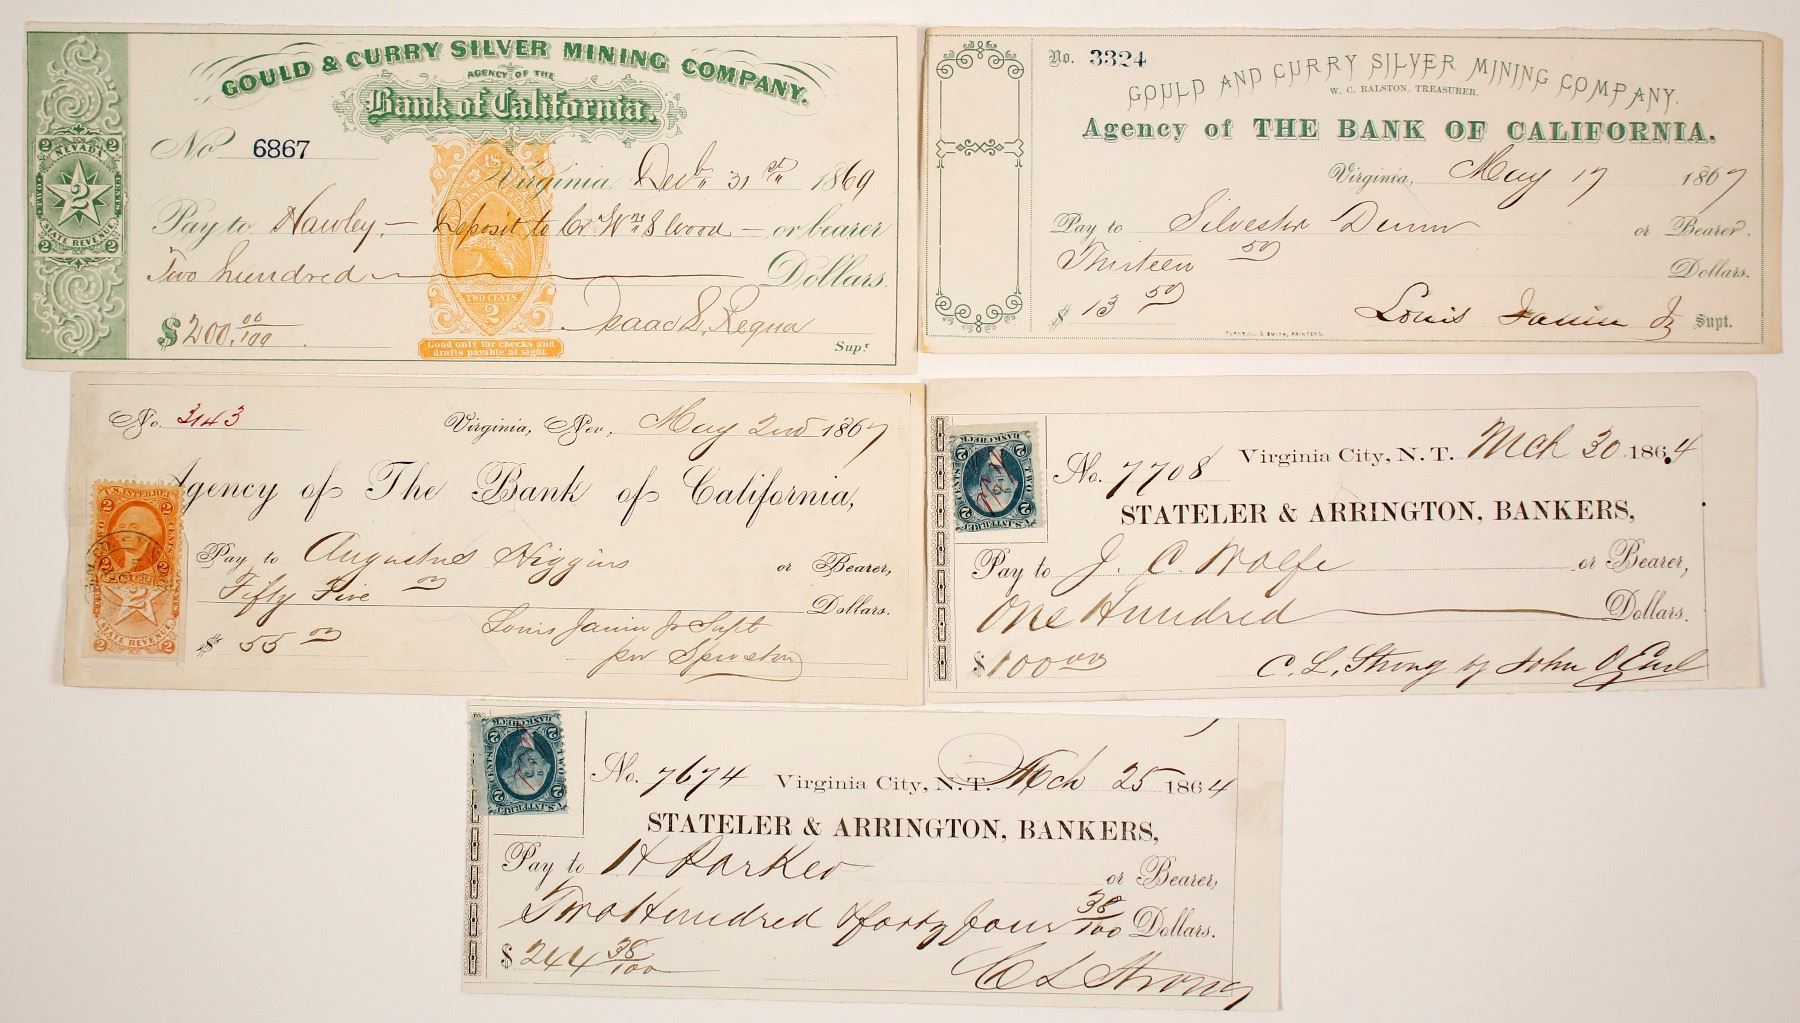 GOULD & CURRY SILVER MINING COMPANY.
AGENCY OF THE
Bank of California.
No 6867
Virginia, Decbr 31st 1869
Pay to Hawley, — Deposit to Cr Wm S Wood — or bearer
Two hundred Dollars.
$200.00/100
Isaac L. Requa
Supt
2 2
NEVADA
TWO CENTS
2
STATE REVENUE
2 2
TWO CENTS
2
Good only for checks and
drafts payable at sight.
No. 3324
GOULD AND CURRY SILVER MINING COMPANY.
W. C. RALSTON, TREASURER.
Agency of THE BANK OF CALIFORNIA.
Virginia, May 17 1867
Pay to Silvester Dunn or Bearer.
Thirteen 50 Dollars.
$ 13 50
Louis Janin Jr Supt.
TURNBULL & SMITH, PRINTERS.
No. 3143 Virginia, Nev, May 2nd 1867
Agency of The Bank of California,
Pay to Augustus Higgins or Bearer,
Fifty Five 00 Dollars.
$ 55 00
Louis Janin Jr Supt
per
U.S. INTER. REV.
2 2
TWO CENTS
2
STATE REVENUE
2 2
No. 7708 Virginia City, N. T. Mch 30 1864
STATELER & ARRINGTON, BANKERS,
Pay to J. C. Wolfe or Bearer,
One Hundred Dollars.
$100 00
C. L. Strong by John O Earl
BANK CHECK
TWO CENTS
U.S. INTER. REV.
No. 7674 Virginia City, N. T. Mch 25 1864
STATELER & ARRINGTON, BANKERS,
Pay to H Parker or Bearer,
Two Hundred & forty four 38/100 Dollars.
$ 244 38/100
C L Strong
BANK CHECK
TWO CENTS
U.S. INTER. REV.